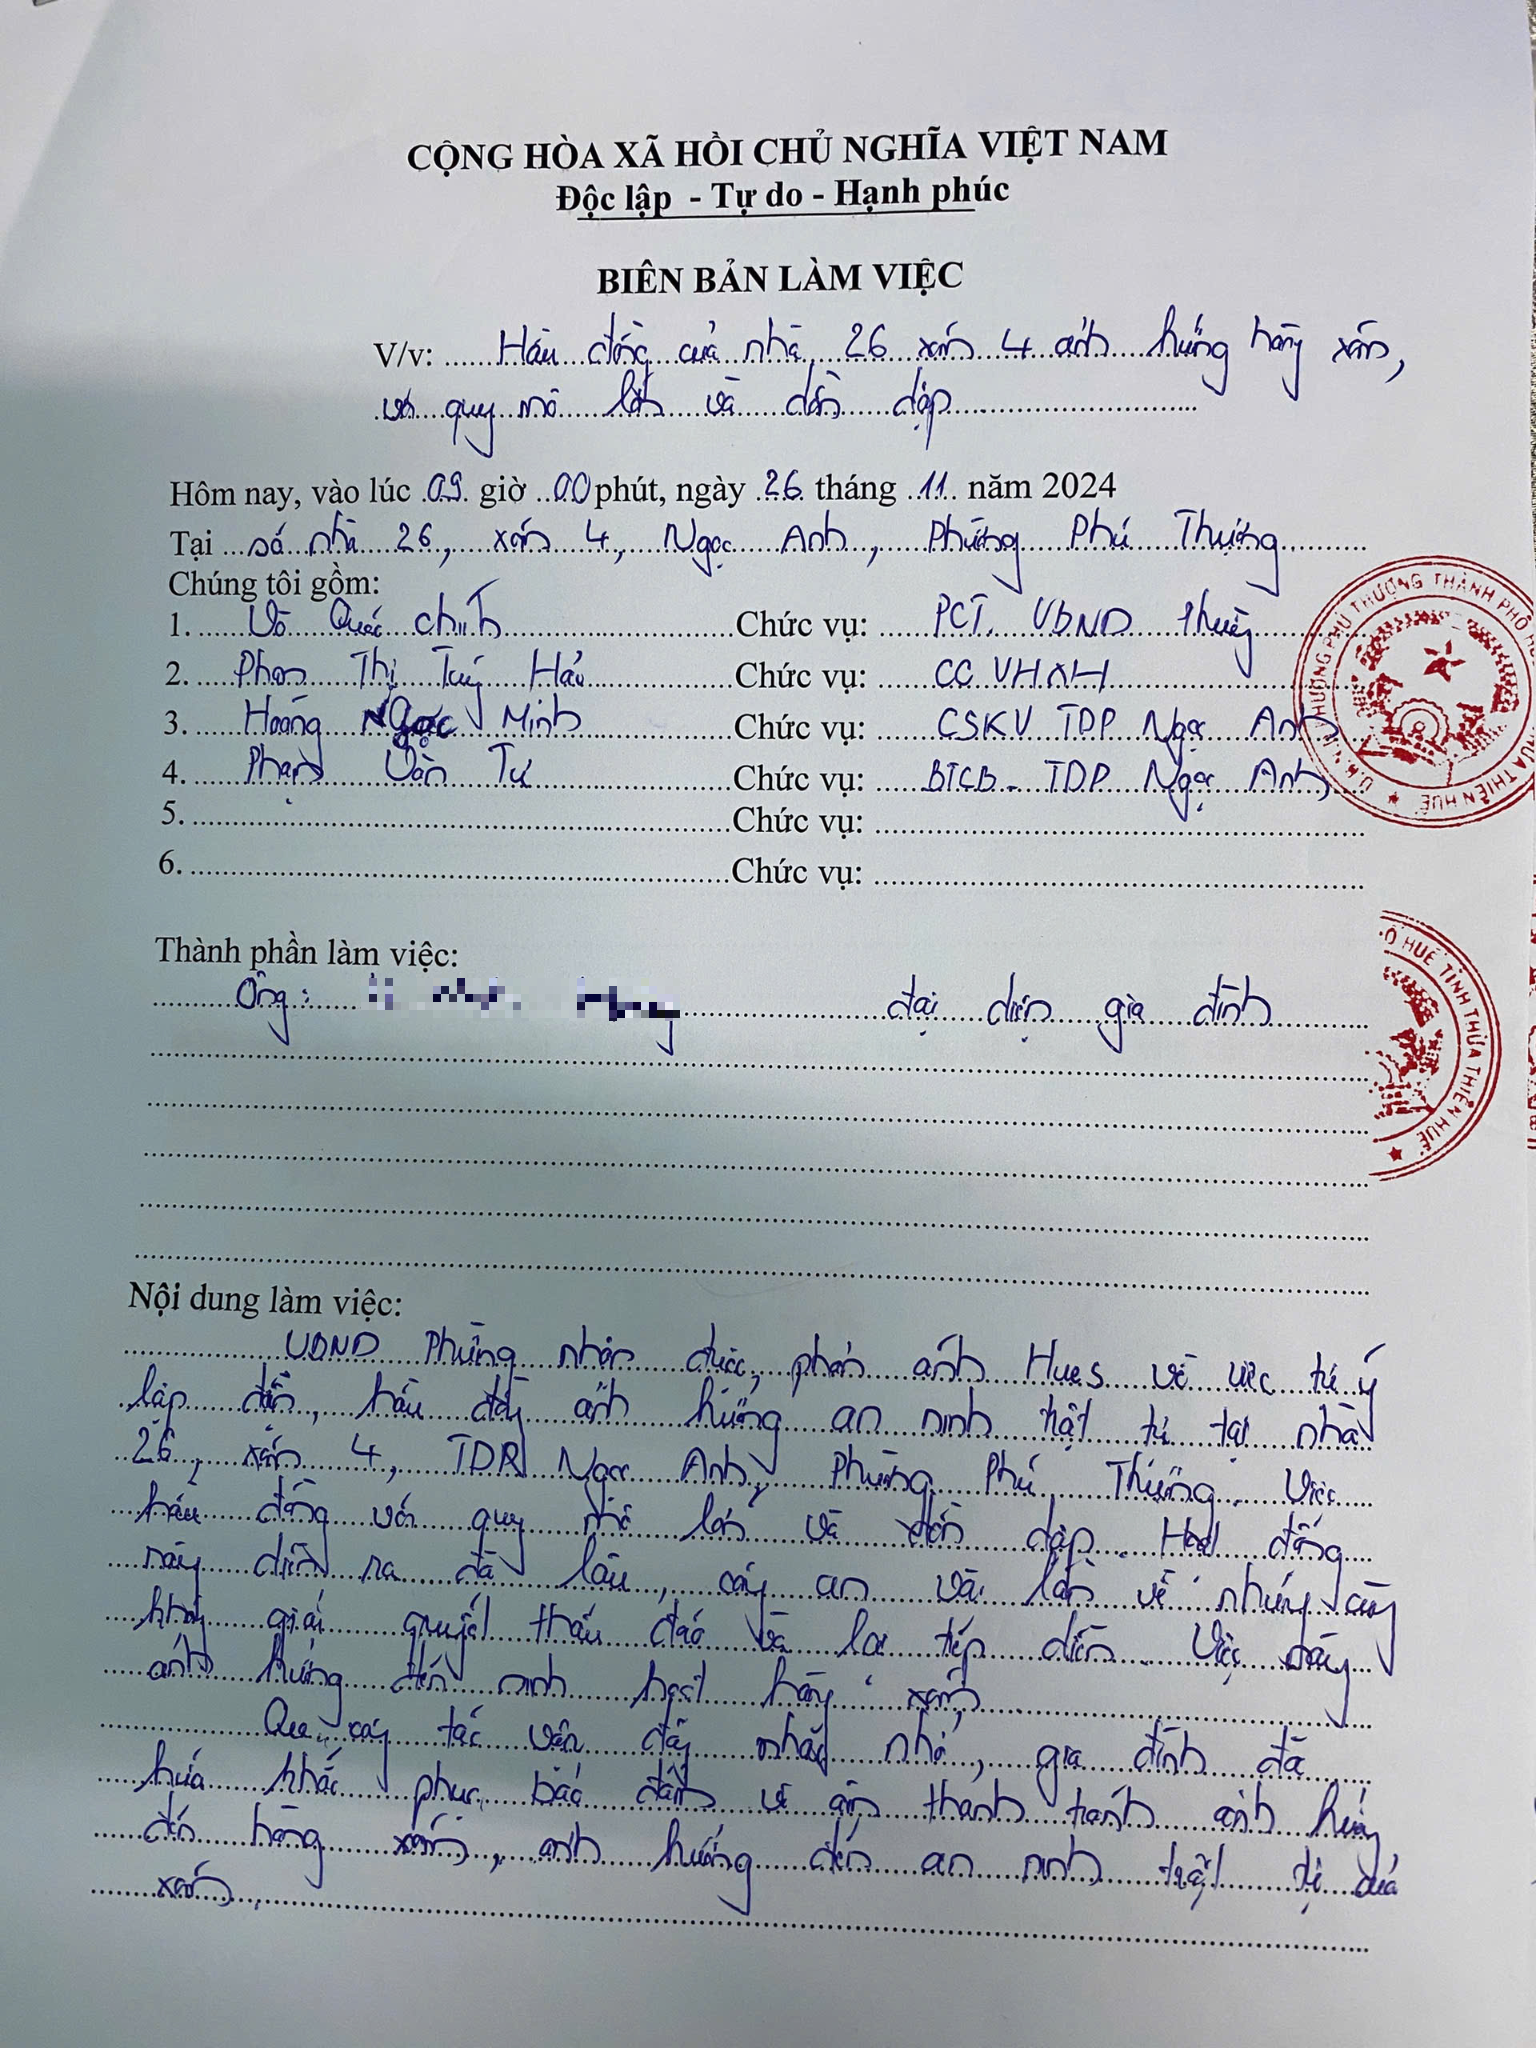 CỘNG HÒA XÃ HỒI CHỦ NGHĨA VIỆT NAM
Độc lập - Tự do - Hạnh phúc
BIÊN BẢN LÀM VIỆC
V/v: Hầu đồng của nhà 26 xóm 4 ảnh hưởng hàng xóm,
với quy mô lớn và dồn dập
Hôm nay, vào lúc 09 giờ 00 phút, ngày 26 tháng 11 năm 2024
Tại số nhà 26, xóm 4, Ngọc Anh, Phường Phú Thượng
Chúng tôi gồm:
1. Võ Quốc Chính Chức vụ: PCT. UBND Phường
2. Phan Thị Tuý Hải Chức vụ: CC VHXH
3. Hoàng Ngọc Minh Chức vụ: CSKV TDP Ngọc Anh
4. Phạm Văn Tư Chức vụ: BTCB TDP Ngọc Anh
5. Chức vụ:
6. Chức vụ:
U.B.N.D PHƯỜNG PHÚ THƯỢNG THÀNH PHỐ THỪA THIÊN HUẾ
Thành phần làm việc:
Ông: đại diện gia đình
HUẾ TỈNH THỪA THIÊN HUẾ
Nội dung làm việc:
UBND Phường nhận được phản ánh HueS về việc tự ý
lập đền, hầu đồng ảnh hưởng an ninh trật tự tại nhà
26, xóm 4, TDP Ngọc Anh, Phường Phú Thượng. Việc
hầu đồng với quy mô lớn và dồn dập. Hoạt động
này diễn ra đã lâu, công an vài lần về nhưng cũng
không giải quyết thấu đáo và lại tiếp diễn. Việc này
ảnh hưởng đến sinh hoạt hàng xóm
Qua công tác vận động nhắc nhở, gia đình đã
hứa khắc phục bảo đảm về âm thanh tránh ảnh hưởng
đến hàng xóm, ảnh hưởng đến an ninh trật tự của
xóm.